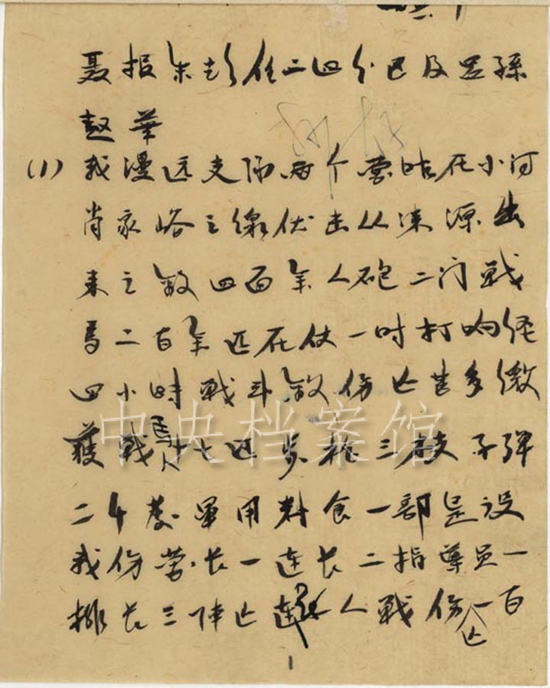 聂报朱彭任二四分巴及呈孫
赵华
(1) 我漫远支队两个营昨在小河
肖家峪之線伏击从涞源出
来之敌四百年人砲二门戰
马二百年匹在伏一时打响经
四小时戰斗敌伤亡甚多缴
获戰馬七匹步枪三枝子弹
二千发軍用料食一部是役
我伤营长一连长二指導员一
排长三阵亡連人戰伤亡一百
1
中央档案馆